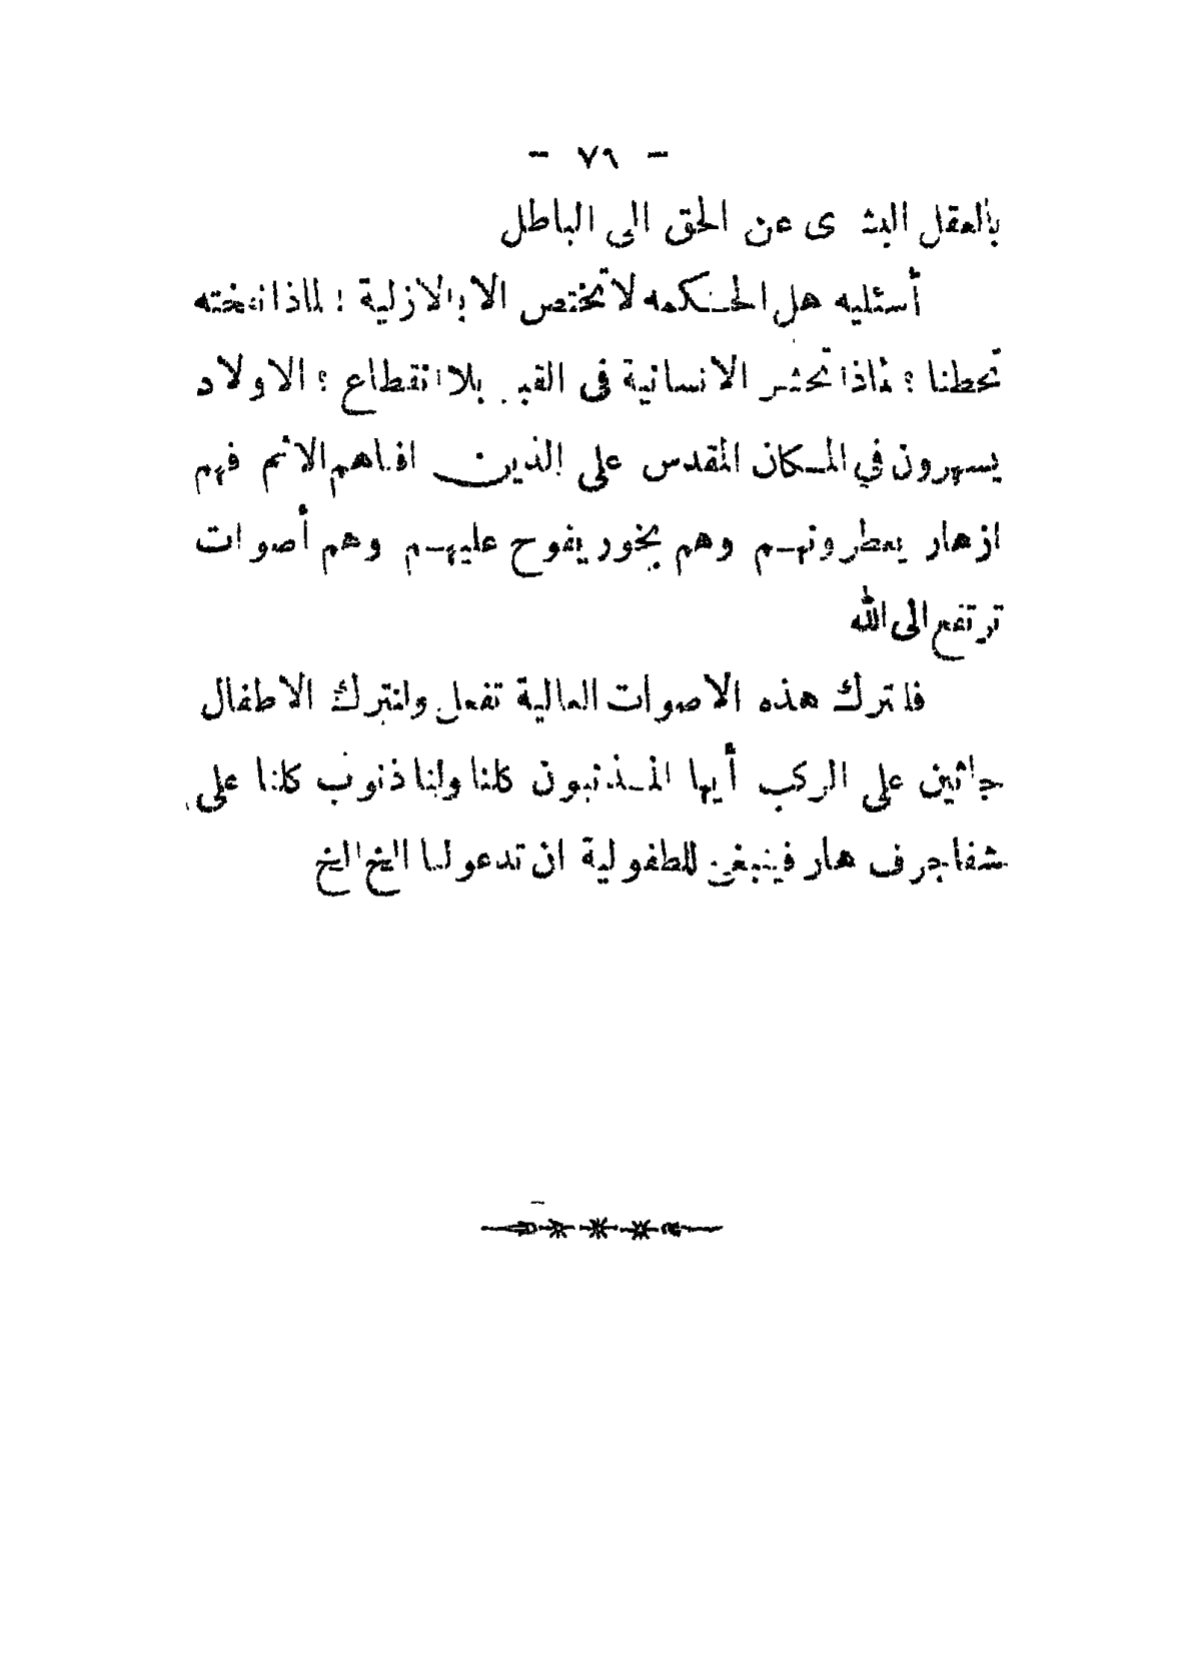 - ٧٩ -
بالعقل البشرى عن الحق الى الباطل
أسئليه هل الحكمه لا تختص الا بالازلية ؛ لماذا نخته
تحطنا ؟ لماذا تحشر الانسانية فى القبر بلا انقطاع ؟ الاولاد
يسهرون في المكان المقدس على الذين افناهم الاثم فهم
ازهار يعطرونهم وهم بخور يفوح عليهم وهم أصوات
ترتفع الى الله
فلنترك هذه الاصوات العالية تفعل ولنترك الاطفال
جاثين على الركب أيها المذنبون كلنا ولنا ذنوب كلنا على
شفا جرف هار فينبغى للطفولية ان تدعو لنا الخ الخ